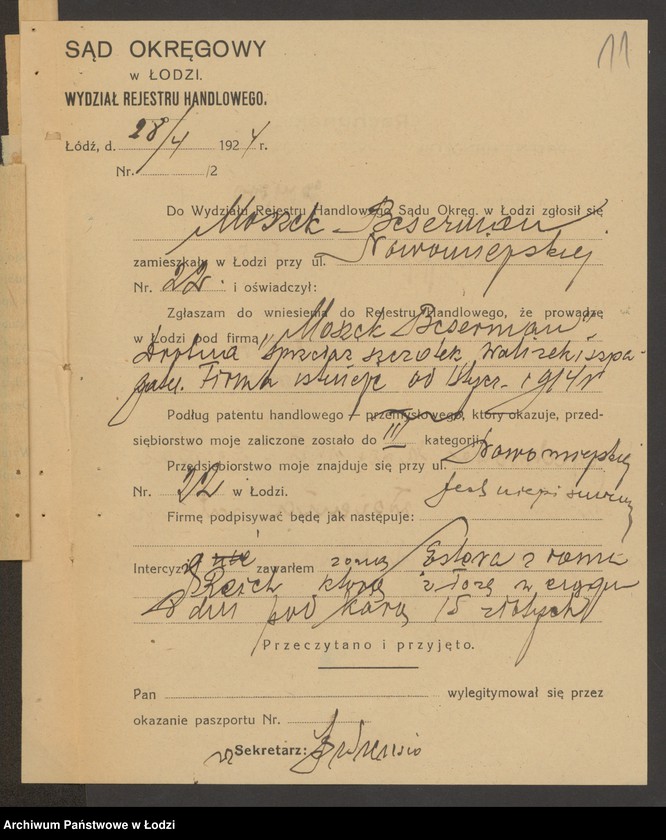 11
SĄD OKRĘGOWY
w ŁODZI.
WYDZIAŁ REJESTRU HANDLOWEGO.
Łódź, d. 28/4 1924 r.
Nr. /2
Do Wydziału Rejestru Handlowego Sądu Okręg. w Łodzi zgłosił się
Moszek Beserman
zamieszkały w Łodzi przy ul. Nowomiejskiej
Nr. 22 i oświadczył:
Zgłaszam do wniesienia do Rejestru Handlowego, że prowadzę
w Łodzi pod firmą „Moszek Beserman”
sprzedaż szczotek, walizek i szpa-
gatu. Firma istnieje od 1914 r
Podług patentu handlowego – przemysłowego, który okazuje, przed-
siębiorstwo moje zaliczone zostało do III kategorji
Przedsiębiorstwo moje znajduje się przy ul. Nowomiejskiej
Nr. 22 w Łodzi. jest niepiśmienny
Firmę podpisywać będę jak następuje:
Intercyzę nie zawarłem z żoną Esterą z domu
Reich którą złożę w ciągu
8 dni pod karą 15 złotych
Przeczytano i przyjęto.
Pan wylegitymował się przez
okazanie paszportu Nr.
Sekretarz:
Archiwum Państwowe w Łodzi